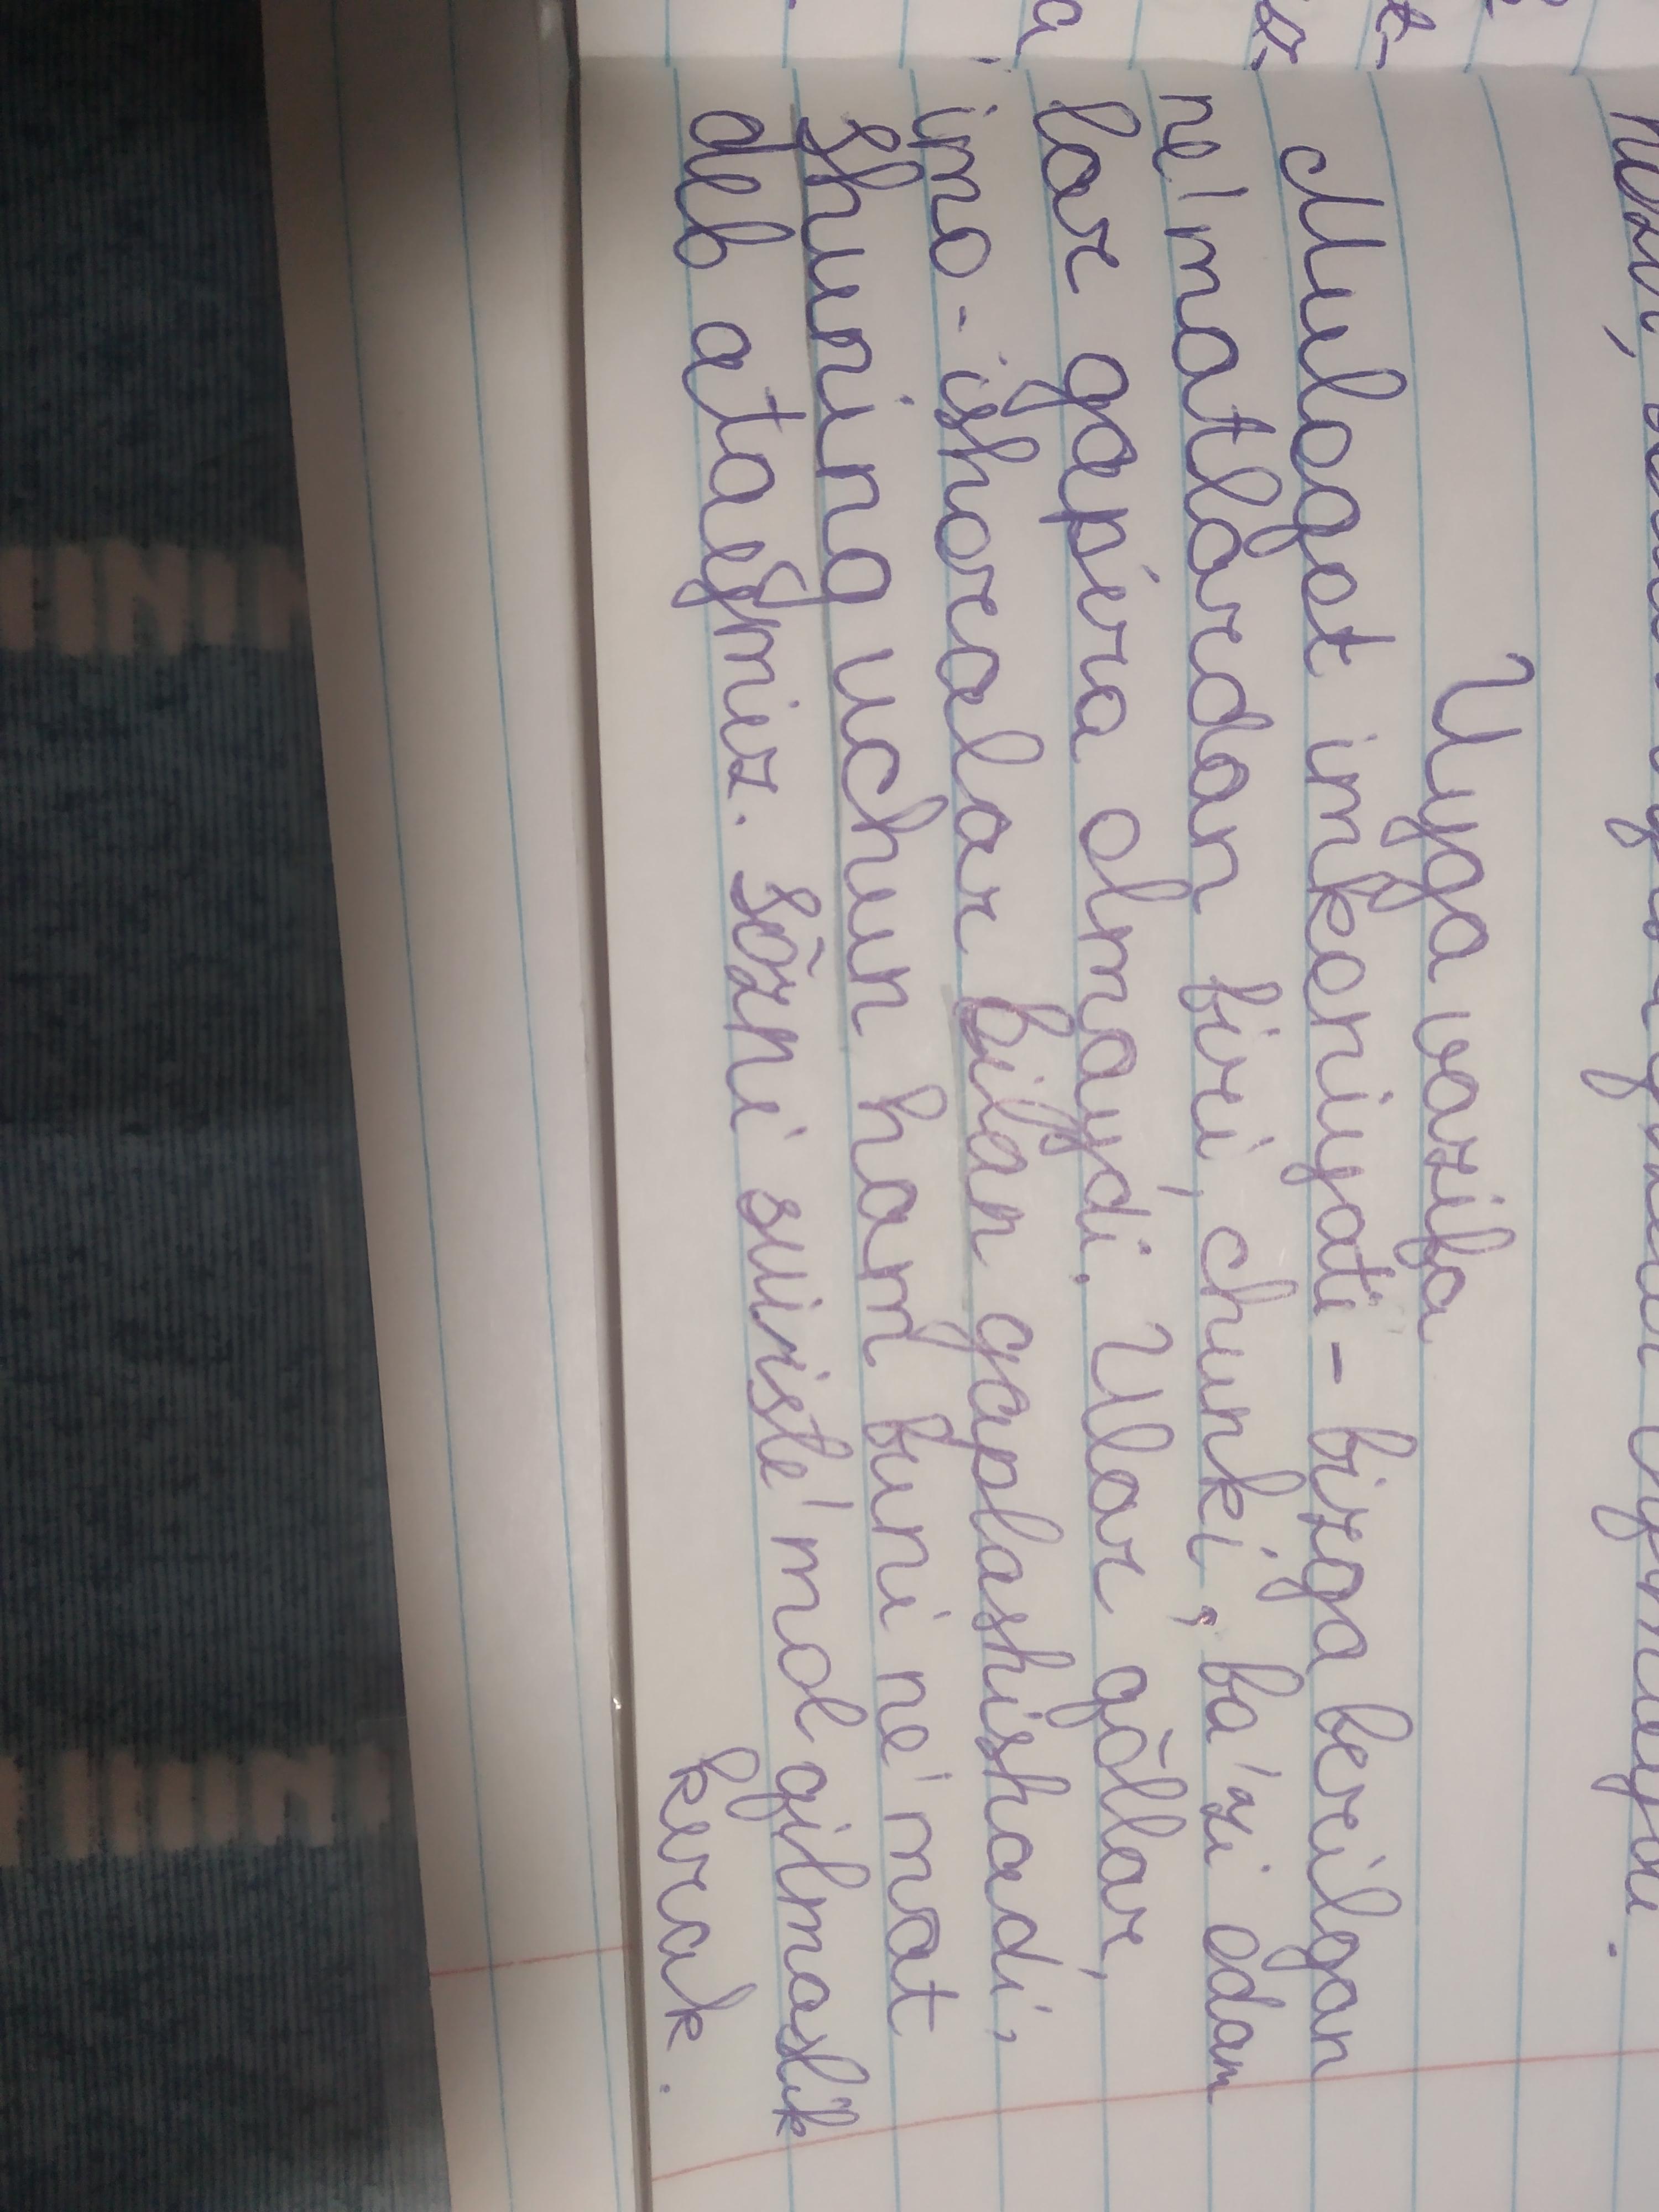 Uyga vazifa
Muloqot imkoniyati - bizga berilgan
ne'matlardan biri, chunki, ba'zi odam
lar gapira olmaydi. Ular qõllar,
imo-ishoralar bilan gaplashishadi,
shuning uchun ham buni ne'mat
deb ataymiz. Sõzni suiste'mol qilmaslik
kerak.